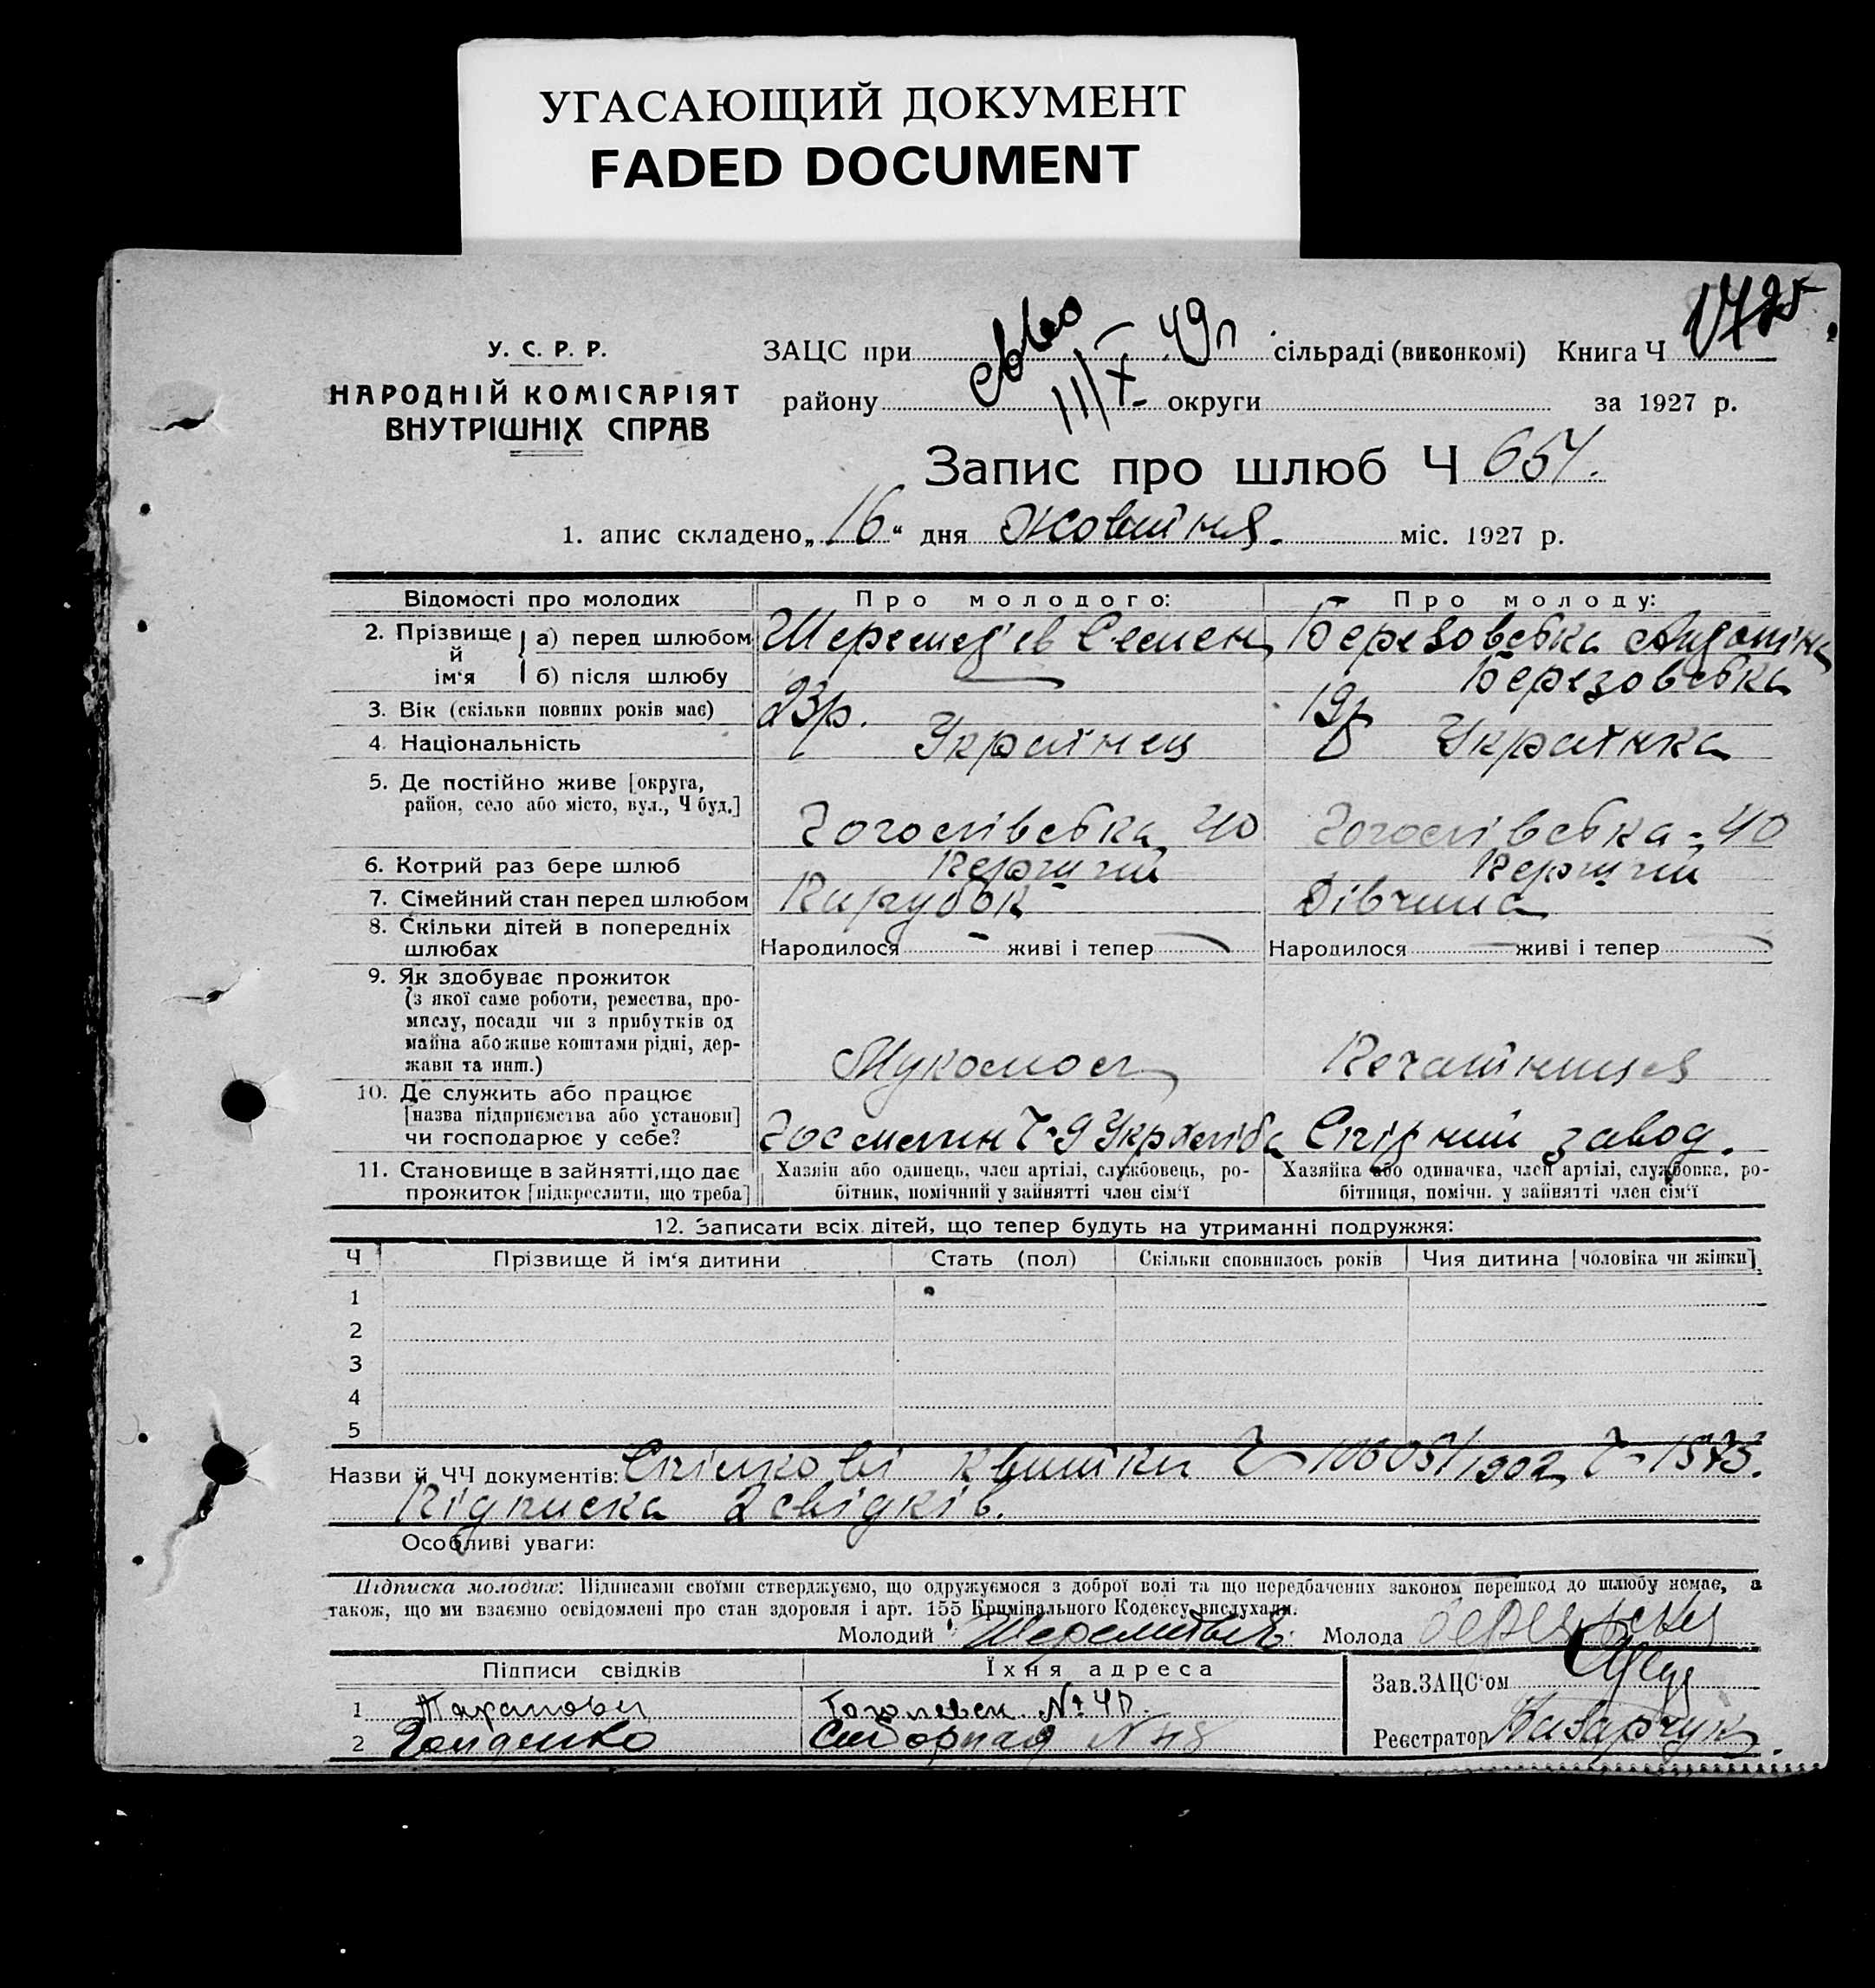 УГАСАЮЩИЙ ДОКУМЕНТ
FADED DOCUMENT
У. С. Р. Р.
НАРОДНІЙ КОМІСАРІЯТ
ВНУТРІШНІХ СПРАВ
ЗАЦС при 11/X - 49 р сільраді (виконкомі) Книга Ч
району округи за 1927 р.
Запис про шлюб Ч 654.
1. апис складено „16“ дня Жовтня. міс. 1927 р.
Відомості про молодих Про молодого: Про молоду:
2. Прізвище й ім‘я а) перед шлюбом Шеремет'ів Семен Березовська Антоніна
б) після шлюбу — Березовська
3. Вік (скільки повних років має) 23р. 19р
4. Національність Українец Українка
5. Де постійно живе [округа,
район, село або місто, вул., Ч буд.]
Гоголівська 40 Гоголівська - 40
6. Котрий раз бере шлюб Перший Перший
7. Сімейний стан перед шлюбом Парубок Дівчина
8. Скільки дітей в попередніх
шлюбах Народилося - живі і тепер — Народилося — живі і тепер —
9. Як здобуває прожиток
(з якої саме роботи, ремества, про-
мислу, посади чи з прибутків од
майна або живе коштами рідні, дер-
жави та инш.) Мукомол Печатниця
10. Де служить або працює
[назва підприємства або установи]
чи господарює у себе? Госмлин Ч-9 Укрхліба Спірний завод.
11. Становище в зайнятті, що дає
прожиток [підкреслити, що треба]
Хазяїн або одинець, член артілі, службовець, ро-
бітник, помічний у зайнятті член сім‘ї
Хазяйка або одиначка, член артілі, службовка, ро-
бітниця, помічн. у зайнятті член сім‘ї
12. Записати всіх дітей, що тепер будуть на утриманні подружжя:
Ч Прізвище й ім‘я дитини Стать (пол) Скільки сповнилось років Чия дитина [чоловіка чи жінки]
1
2
3
4
5
Назви й ЧЧ документів: Спілкові квитки Ч 10605/1902, Ч- 1573.
Підписка 2 свідків.
Особливі уваги:
Підписка молодих: Підписами своїми стверджуємо, що одружуємося з доброї волі та що передбачених законом перешкод до шлюбу немає, а
також, що ми взаємно освідомлені про стан здоровля і арт. 155 Кримінального Кодексу вислухали.
Молодий Молода
Підписи свідків Їхня адреса
Зав. ЗАЦС‘ом
1 № 40.
2
Реєстратор